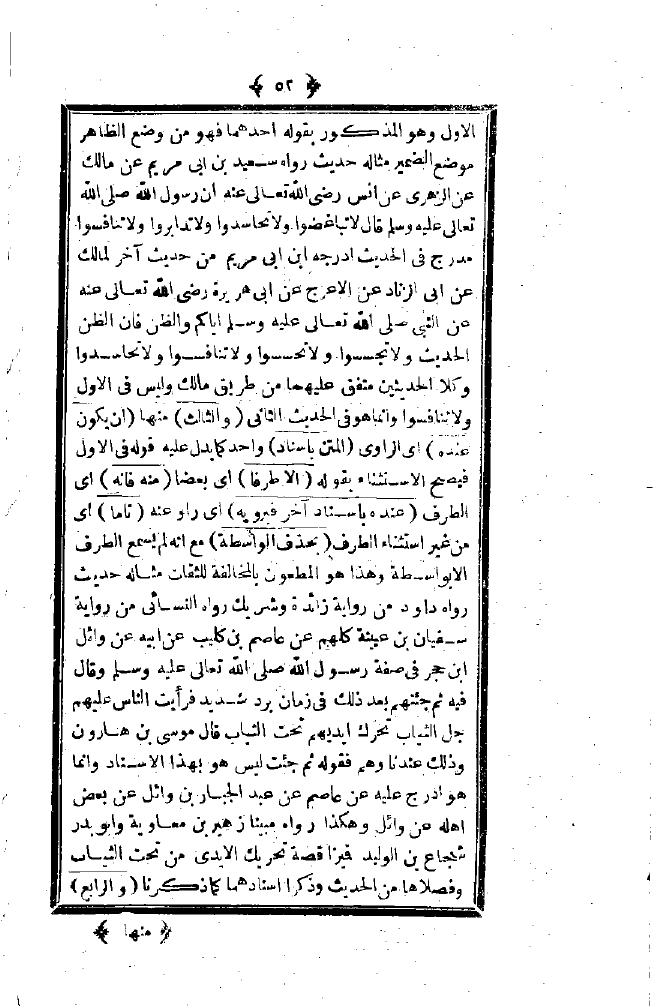 ﴿ ٥٢ ﴾
الاول وهو المذكور بقوله احدهما فهو من وضع الظاهر
موضع الضمير مثاله حديث رواه سعيد بن ابى مريم عن مالك
عن الزهرى عن انس رضى الله تعالى عنه ان رسول الله صلى الله
تعالى عليه وسلم قال لا تباغضوا ولا تحاسدوا ولا تدابروا ولا تنافسوا
مدرج فى الحديث ادرجه ابن ابى مريم من حديث آخر لمالك
عن ابى الزناد عن الاعرج عن ابى هريرة رضى الله تعالى عنه
عن النبى صلى الله تعالى عليه وسلم اياكم والظن فان الظن
الحديث ولا تجسسوا ولا تحسسوا ولا تنافسوا ولا تحاسدوا
وكلا الحديثين متفق عليهما من طريق مالك وليس فى الاول
ولا تنافسوا وانما هو فى الحديث الثانى (والثالث) منها (ان يكون
عنده) اى الراوى (المتن باسناد) واحد كما يدل عليه قوله فى الاول
فيصح الاستثناء بقوله (الا طرفا) اى بعضا (منه فانه) اى
الطرف (عنده باسناد آخر فيرويه) اى راو عنه (تاما) اى
من غير استثناء الطرف (بحذف الواسطة) مع انه لم يسمع الطرف
الا بواسطة وهذا هو المطعون بالمخالفة للثقات مثاله حديث
رواه داود من رواية زائدة وشريك رواه النسائى من رواية
سفيان بن عيينة كلهم عن عاصم بن كليب عن ابيه عن وائل
ابن حجر فى صفة رسول الله صلى الله تعالى عليه وسلم وقال
فيه ثم جئتهم بعد ذلك فى زمان برد شديد فرأيت الناس عليهم
جل الثياب تحرك ايديهم تحت الثياب قال موسى بن هارون
وذلك عندنا وهم فقوله ثم جئت ليس هو بهذا الاسناد وانما
هو ادرج عليه عن عاصم عن عبد الجبار بن وائل عن بعض
اهله عن وائل وهكذا رواه مبينا زهير بن معاوية وابو بدر
شجاع بن الوليد فيزا قصة تحريك الايدى من تحت الثياب
وفصلاها من الحديث وذكرا اسنادهما كما ذكرنا (والرابع)
﴿ منها ﴾